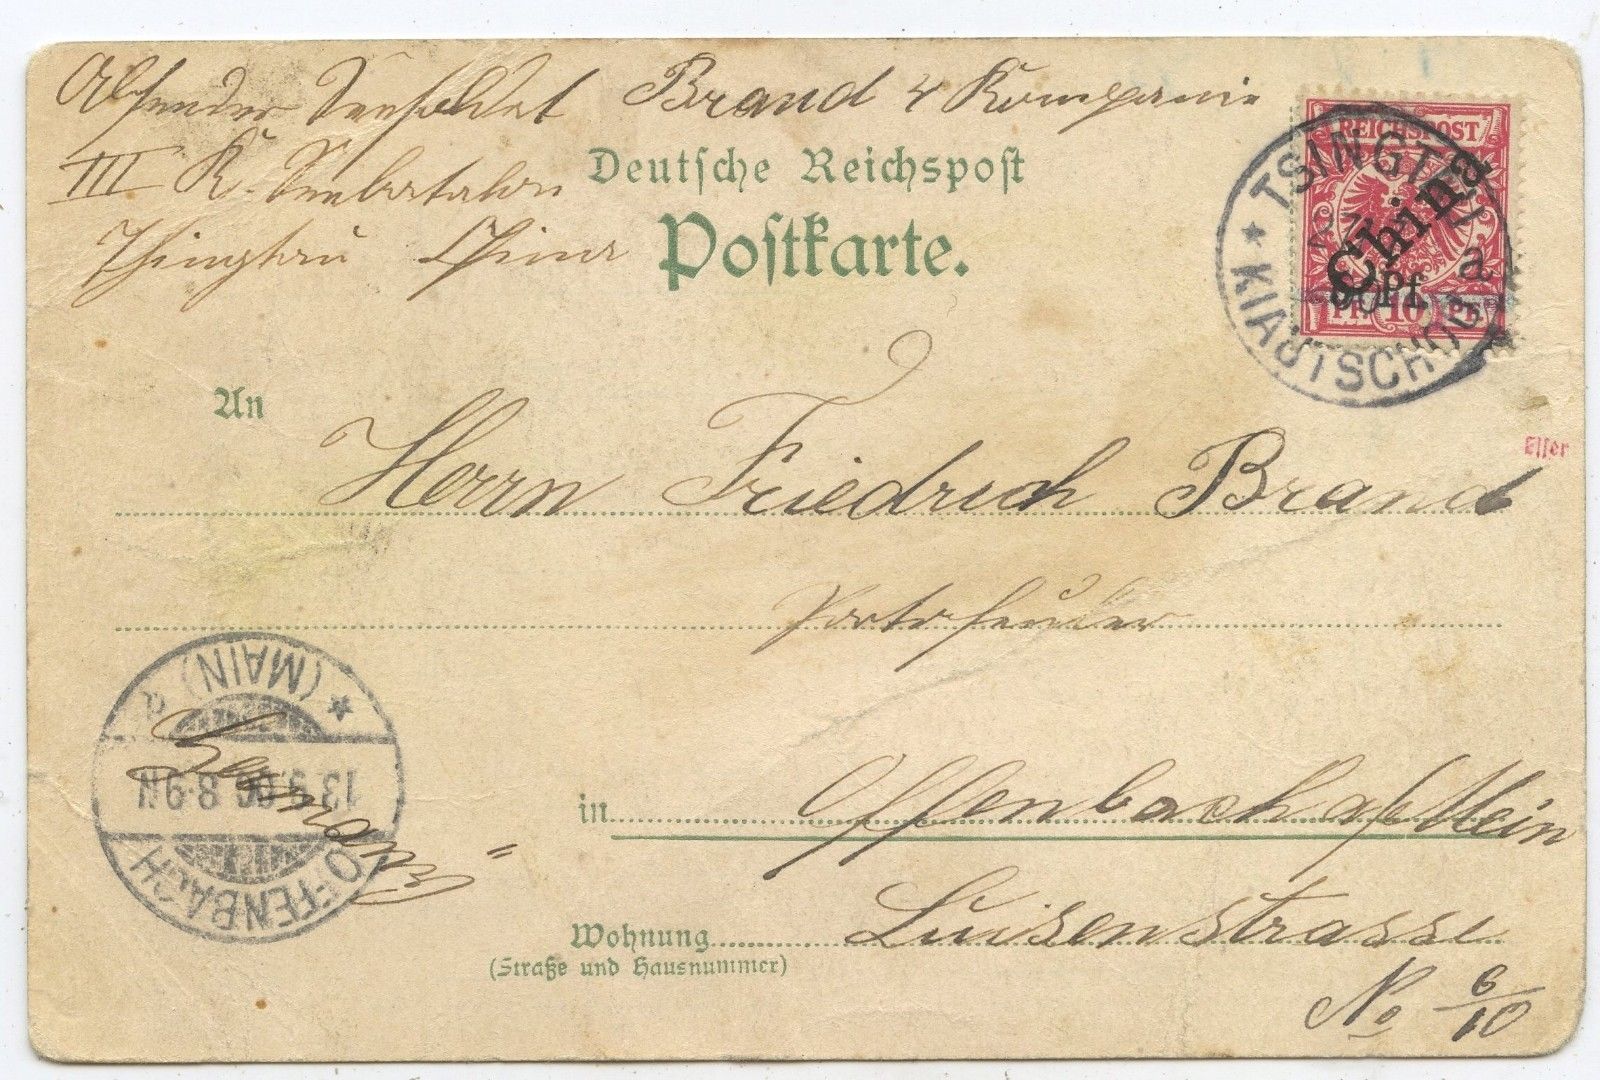 Absender Seesoldat Brand 4 Kompanie
III K. Seebatalon
Deutsche Reichspost
Tsingtau China
Postkarte.
REICHSPOST
China
PF. 10 PF.
TSINGTAU
a
KIAUTSCHOU
An
Herrn Friedrich Brand
Esser
Portefeuller
(MAIN)
13.9.00 8-9N
OFFENBACH
Germany"
in Offenbach a/Mein
Wohnung Luisenstrasse
(Straße und Hausnummer)
No 6/10